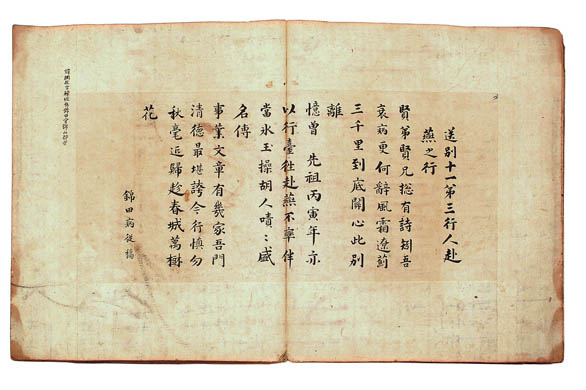 送別十一第三行人赴
燕之行
賢第賢兄摠有詩矧吾
衰病更何辭風霜遼薊
三千里到底關心此別
離
憶曾先祖丙寅年亦
以行臺徃赴燕不寧倅
當氷玉操胡人嘖〻盛
名傳
事業文章有幾家吾門
清德最堪誇今行慎勿
秋毫近歸趁春城萬樹
花
錦田病従